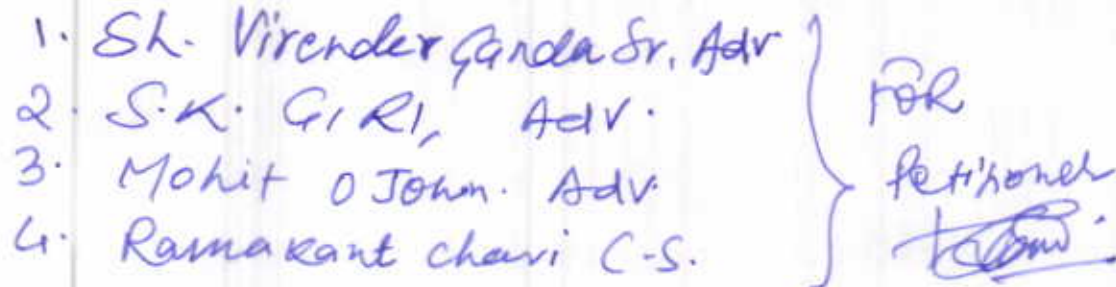 1. Sh. Virender Ganda Sr. Adv
2. S.K. GIRI, Adv.
3. Mohit O John. Adv.
4. Ramakant chavi C.S.
FOR
Petitioner